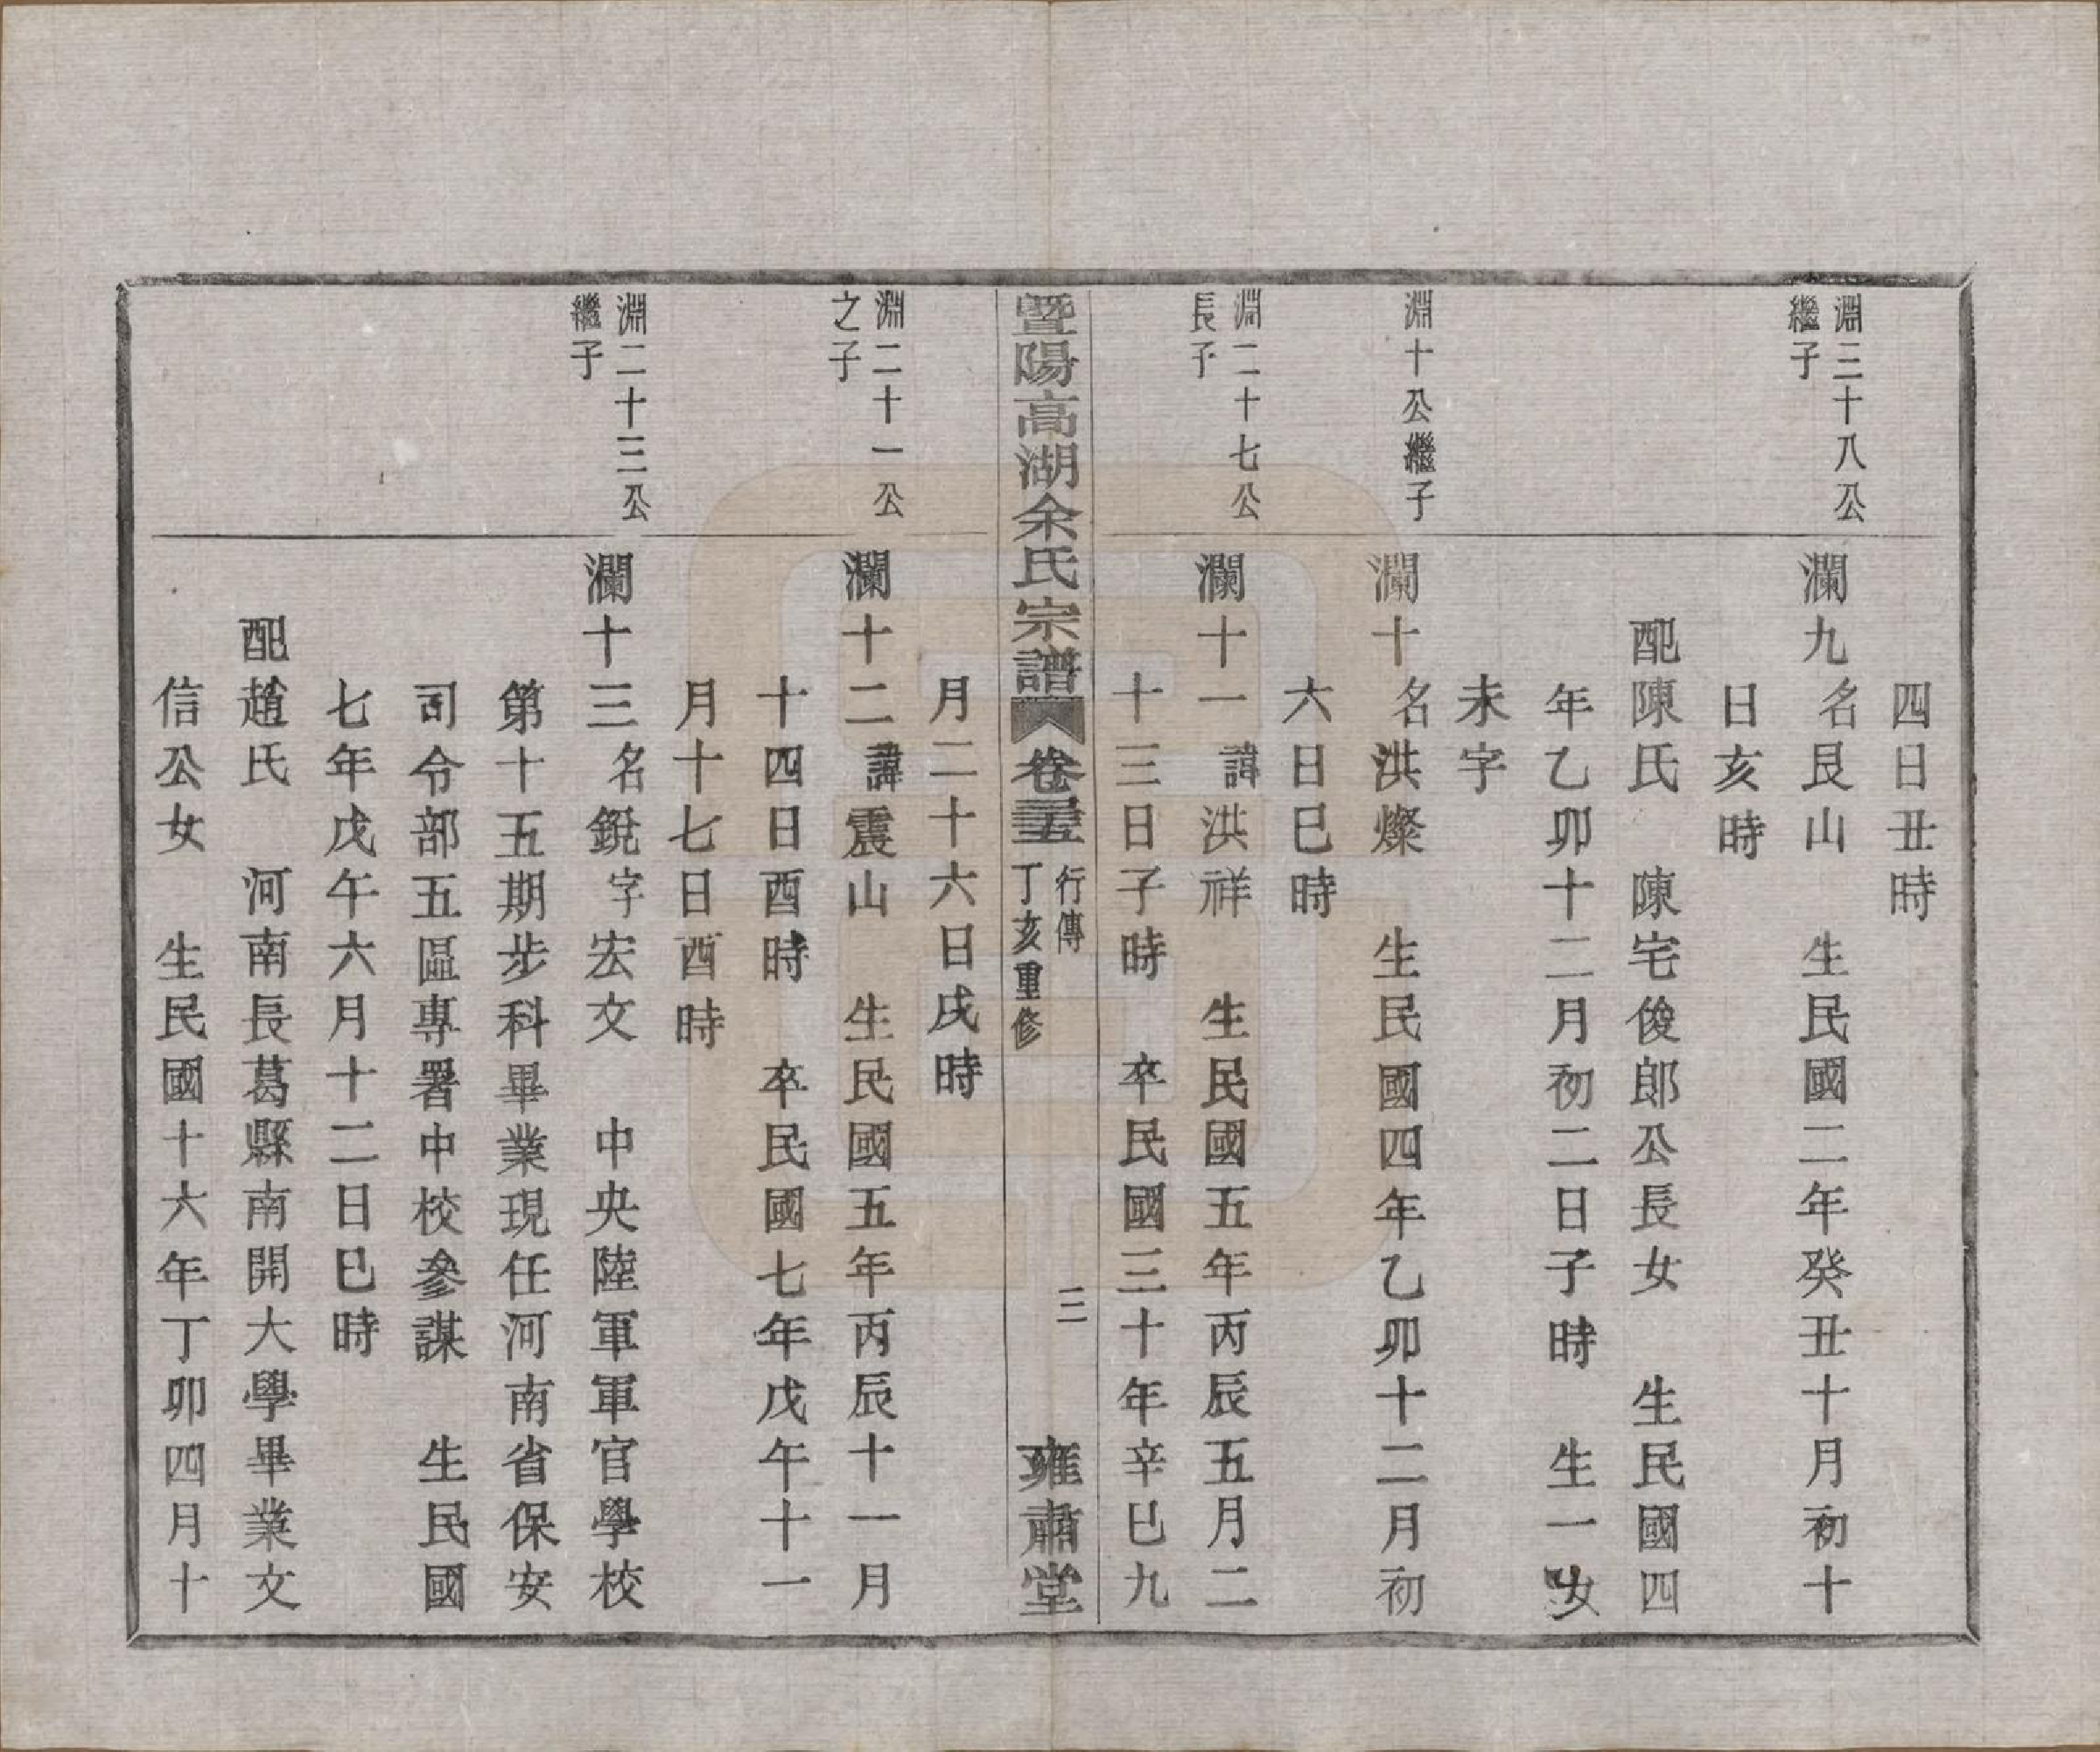 四日丑時
淵三十八公
繼子
瀾九名艮山　生民國二年癸丑十月初十
日亥時
配陳氏　陳宅俊郎公長女　生民國四
年乙卯十二月初二日子時　生一女
未字
淵十公繼子
瀾十名洪燦　生民國四年乙卯十二月初
六日巳時
淵二十七公
長子
瀾十一諱洪祥　生民國五年丙辰五月二
十三日子時　卒民國三十年辛巳九
暨陽高湖余氏宗譜 卷三十五 行傳 丁亥重修 二 雍肅堂
月二十六日戌時
淵二十一公
之子
瀾十二諱震山　生民國五年丙辰十一月
十四日酉時　卒民國七年戊午十一
月十七日酉時
淵二十三公
繼子
瀾十三名銳字宏文　中央陸軍軍官學校
第十五期步科畢業現任河南省保安
司令部五區專署中校參謀　生民國
七年戊午六月十二日巳時
配趙氏　河南長葛縣南開大學畢業文
信公女　生民國十六年丁卯四月十